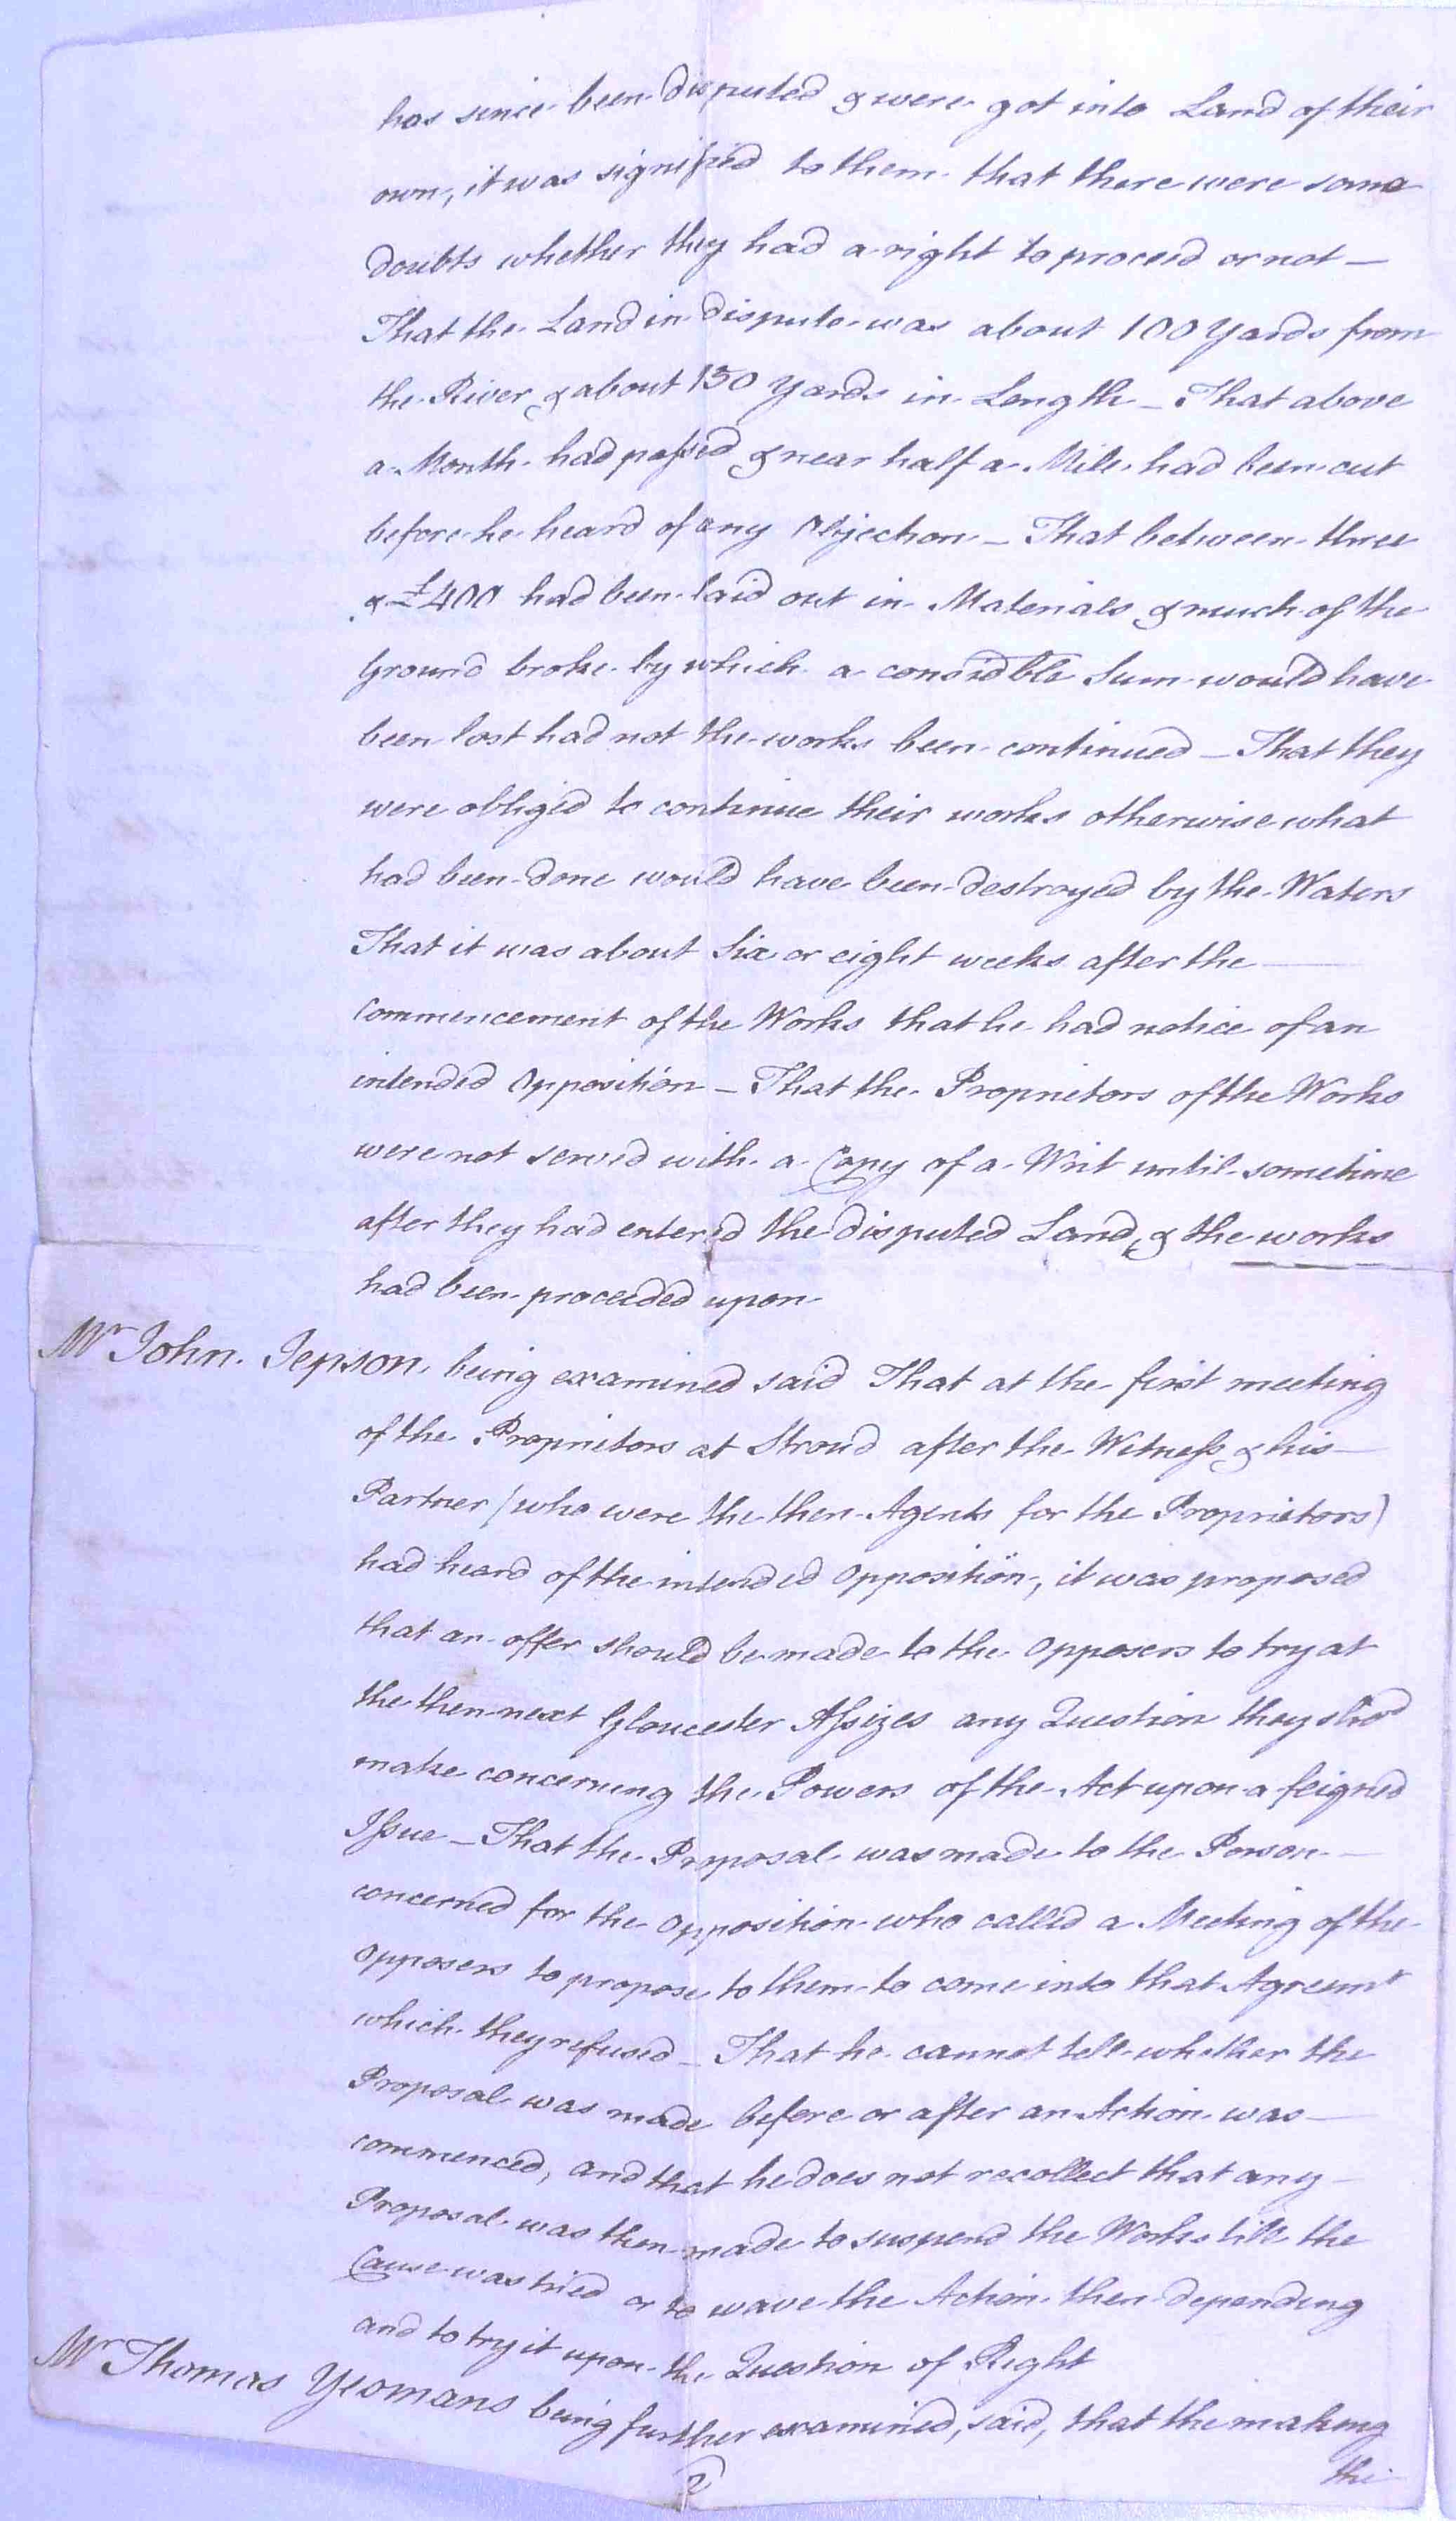 has since been disputed & were got into Land of their
own, it was signified to them that there were some
doubts whether they had a right to proceed or not —
That the Land in dispute was about 100 Yards from
the River & about 150 Yards in Length — That above
a Month had passed & near half a Mile had been cut
before he heard of any Objection — That between three
& £400 had been laid out in Materials & much of the
Ground broke by which a considble Sum would have
been lost had not the works been continued — That they
were obliged to continue their works otherwise what
had been done would have been destroyed by the Waters
That it was about Six or eight weeks after the —
Commencement of the Works that he had notice of an
intended Opposition — That the Proprietors of the Works
were not served with a Copy of a Writ until sometime
after they had entered the disputed Land, & the works
had been proceeded upon
Mr John Jepson being examined said That at the first meeting
of the Proprietors at Stroud after the Witness & his —
Partner (who were the then Agents for the Proprietors)
had heard of the intended Opposition, it was proposed
that an offer should be made to the Opposers to try at
the then next Gloucester Assizes any Question they shod
make concerning the Powers of the Act upon a feigned
Issue — That the Proposal was made to the Person —
concerned for the Opposition who called a Meeting of the
Opposers to propose to them to come into that Agreemt
which they refused — That he cannot tell whether the
Proposal was made before or after an Action was —
commenced, and that he does not recollect that any —
Proposal was then made to suspend the Works till the
Cause was tried or to wave the Action then depending
and to try it upon the Question of Right
Mr Thomas Yeomans being further examined, said, that the making
2
the